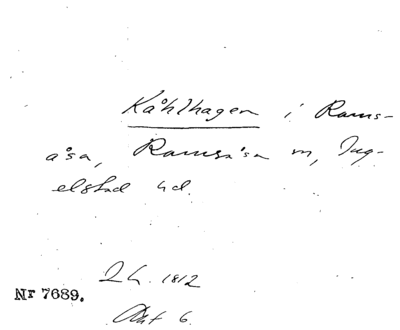 Kåhlhagen i Rams-
åsa, Ramsåsa sn, Ing-
elstad hd.
Lh. 1812
Nr 7689.
Akt 6.